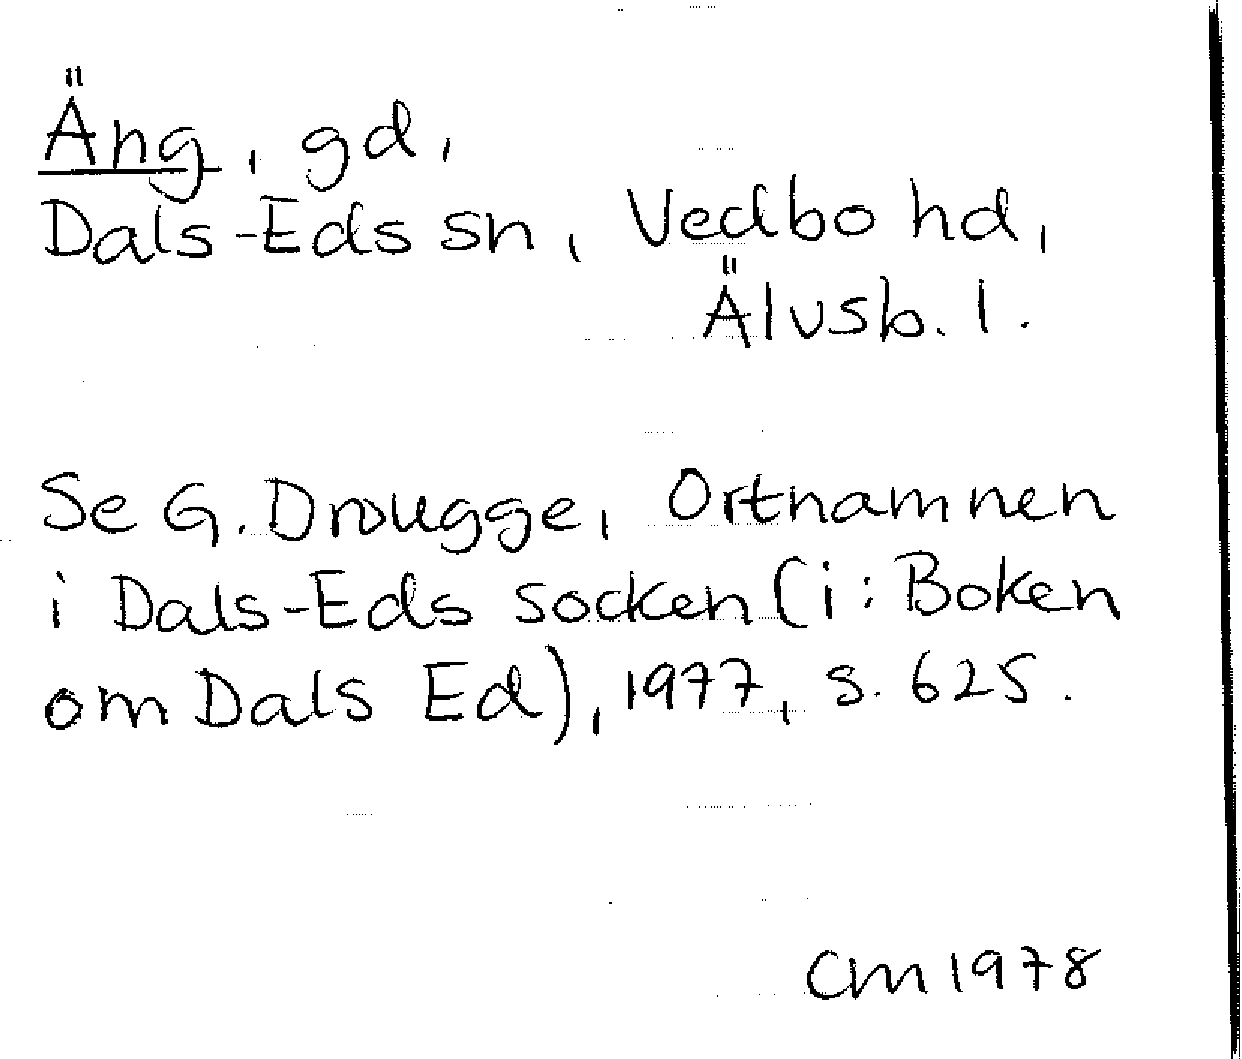 Äng, gd,
Dals-Eds sn, Vedbo hd,
Älvsb. l.
Se G. Drougge, Ortnamnen
i Dals-Eds socken (i: Boken
om Dals Ed), 1977, s. 625.
CM 1978